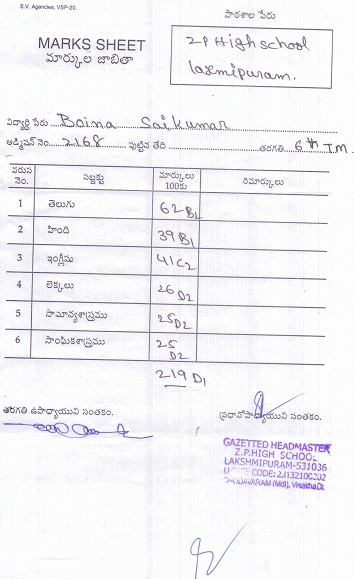 S.V. Agencies, VSP-20.
పాఠశాల పేరు
MARKS SHEET
మార్కుల జాబితా
Z.P High school
Laxmipuram.
విద్యార్థి పేరు Boina Saikumar
అడ్మిషన్ నెం. 2168 పుట్టిన తేది తరగతి 6th T.M.
వరుస నెం. సబ్జక్టు మార్కులు 100కు రిమార్కులు
1 తెలుగు 62 B2
2 హింది 39 B1
3 ఇంగ్లీషు 41 C2
4 లెక్కలు 26 D2
5 సామాన్యశాస్త్రము 25 D2
6 సాంఘికశాస్త్రము 25 D2
219 D1
తరగతి ఉపాధ్యాయుని సంతకం. ప్రధానోపాధ్యాయుని సంతకం.
GAZETTED HEADMASTER
Z.P.HIGH SCHOOL
LAKSHMIPURAM-531036
CODE:
(Mdl), Visakha Dt.